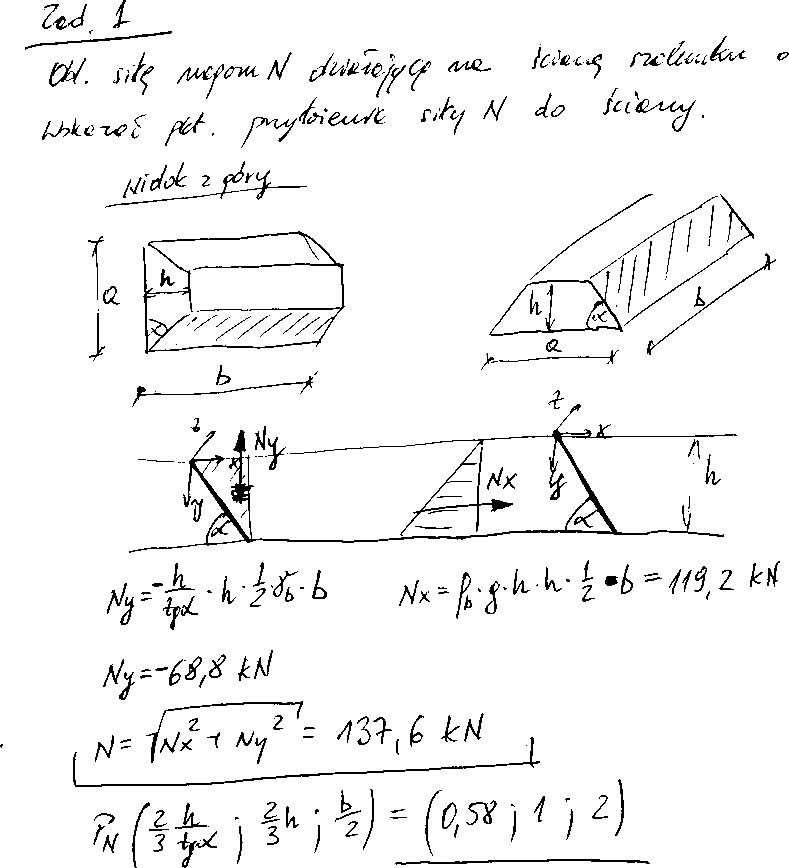 Zad. 1
Obl. siłę naporu N działającą na ścianę szalunku o
Wskazać pkt. przyłożenia siły N do ściany.
Widok z góry
a h α b
h α a b
z x y Ny α
Nx
z x y α h
Ny = -h/tgα · h · 1/2 γb · b
Nx = ρb · g · h · h · 1/2 · b = 119,2 kN
Ny = -68,8 kN
N = √(Nx² + Ny²) = 137,6 kN
PN (2/3 h/tgα ; 2/3 h ; b/2) = (0,58 ; 1 ; 2)